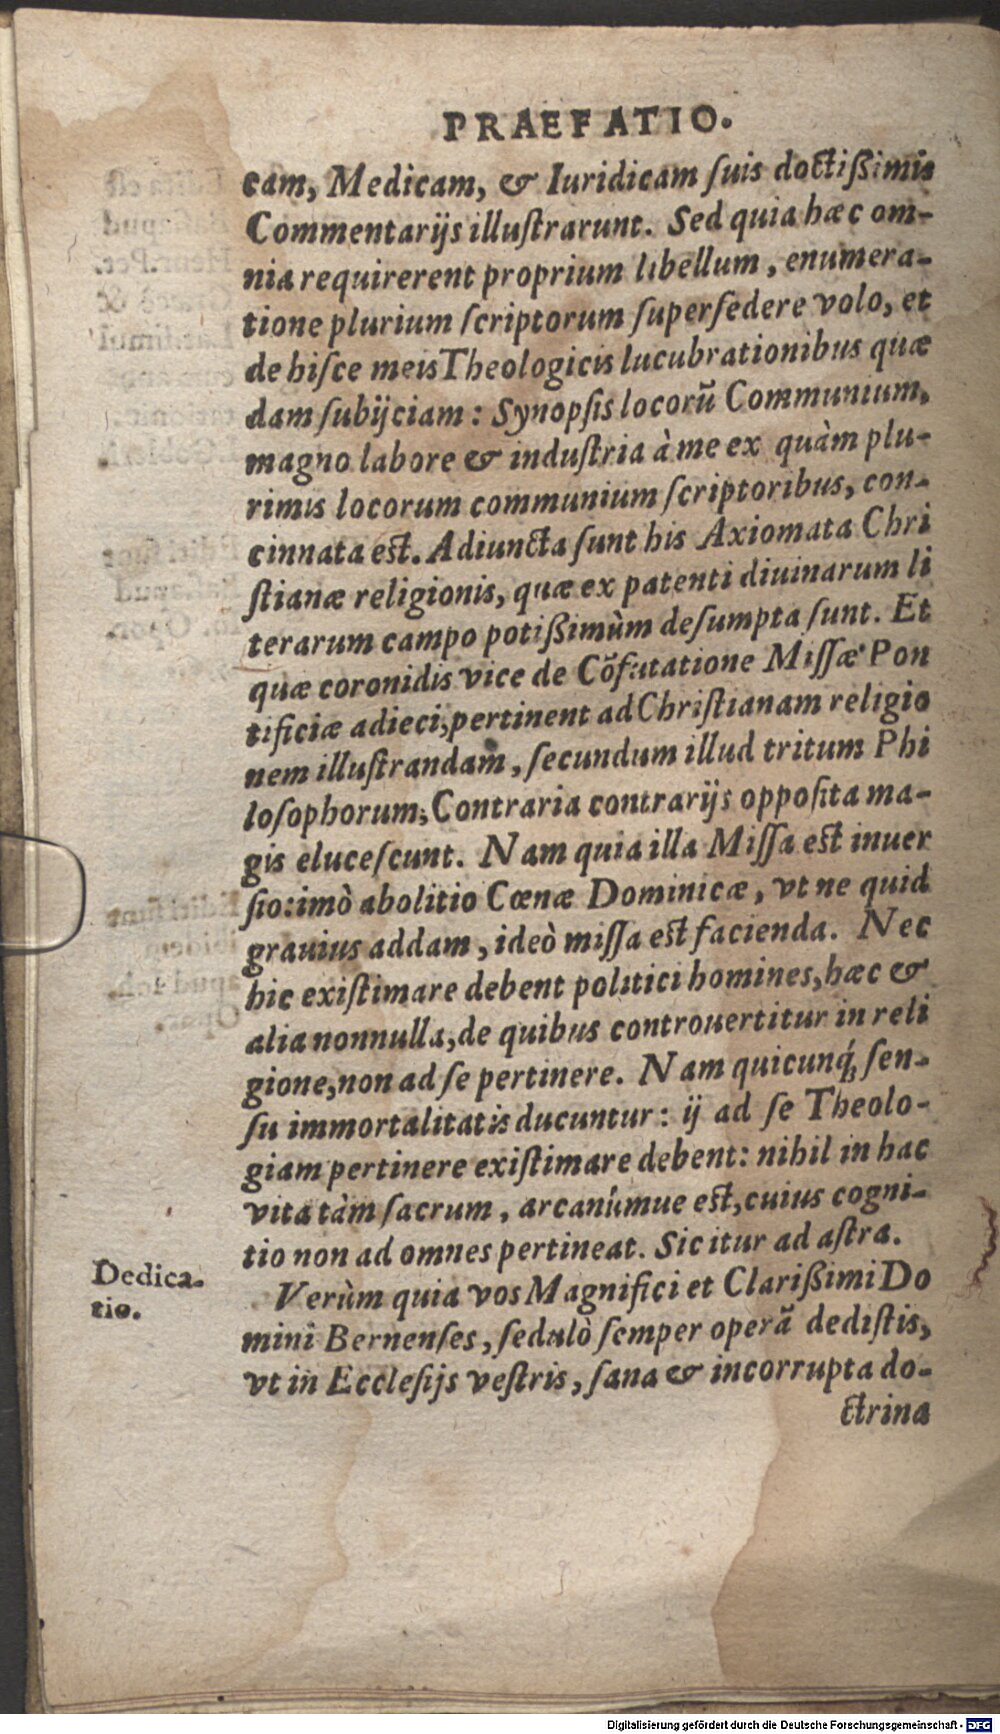 PRAEFATIO.
cam, Medicam, & Iuridicam ſuis doctißimis
Commentarijs illuſtrarunt. Sed quia hæc om-
nia requirerent proprium libellum, enumera-
tione plurium ſcriptorum ſuperſedere volo, et
de hiſce meis Theologicis lucubrationibus quæ
dam ſubijciam: Synopſis locorũ Communium,
magno labore & induſtria à me ex quàm plu-
rimis locorum communium ſcriptoribus, con-
cinnata eſt. Adiuncta ſunt his Axiomata Chri
ſtianæ religionis, quæ ex patenti diuinarum li
terarum campo potißimùm deſumpta ſunt. Et
quæ coronidis vice de Cõfutatione Miſſæ Pon
tificiæ adieci, pertinent ad Chriſtianam religio
nem illuſtrandam, ſecundum illud tritum Phi
loſophorum; Contraria contrarijs oppoſita ma-
gis eluceſcunt. Nam quia illa Miſſa eſt inuer
ſio: imò abolitio Cœnæ Dominicæ, vt ne quid
grauius addam, ideò miſſa eſt facienda. Nec
hic exiſtimare debent politici homines, hæc &
alia nonnulla, de quibus controuertitur in reli
gione, non ad ſe pertinere. Nam quicunq́; ſen-
ſu immortalitatis ducuntur: ij ad ſe Theolo-
giam pertinere exiſtimare debent: nihil in hac
vita tàm ſacrum, arcanúmue eſt, cuius cogni-
tio non ad omnes pertineat. Sic itur ad aſtra.
Dedica-
tio.
Verùm quia vos Magnifici et Clarißimi Do
mini Bernenſes, ſedulò ſemper operã dediſtis,
vt in Eccleſijs veſtris, ſana & incorrupta do-
ctrina
Digitalisierung gefördert durch die Deutsche Forschungsgemeinschaft - DFG